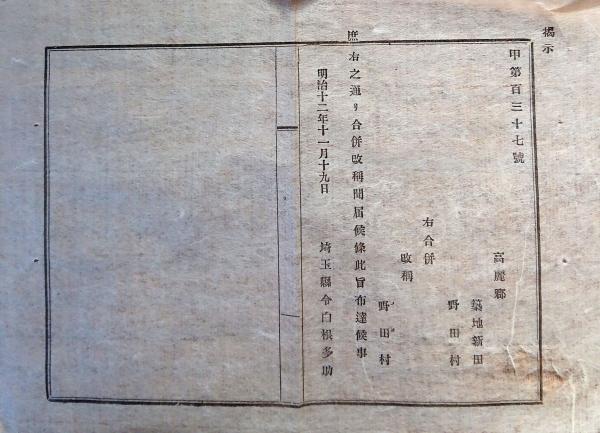 揭示
甲第百三十七號
高麗郡
築地新田
野田村
右合併
改稱
野田村
庶
右之通リ合併改稱聞届候條此旨布達候事
明治十二年十一月十九日
埼玉縣令白根多助